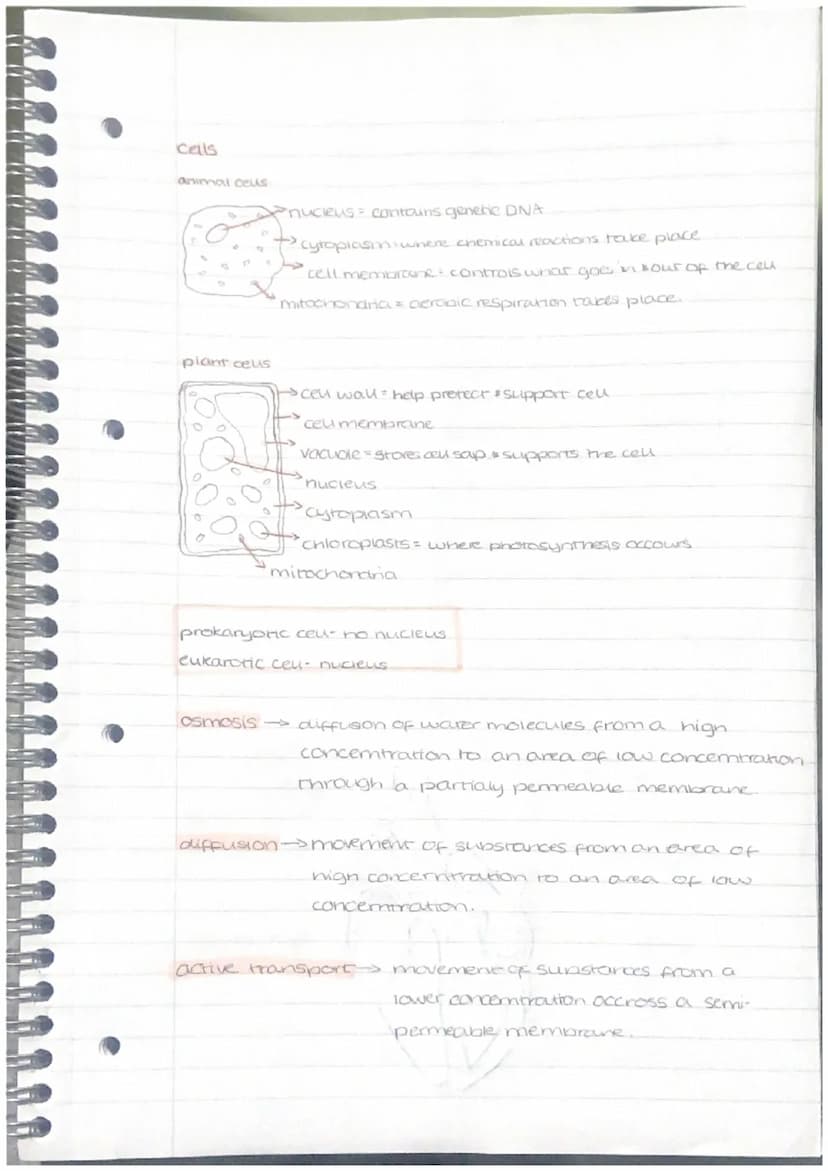 cells
animal cells
nucleus = contains genetic DNA
cytoplasm = where chemical reactions take place
cell membrane = controls what goes in & out of the cell
mitochondria = aerobic respiration takes place.
plant cells
cell wall = help protect & support cell
cell membrane
vacuole = stores cell sap & supports the cell
nucleus
cytoplasm
chloroplasts = where photosynthesis accours
mitochondria
prokaryotic cell - no nucleus
eukarotic cell - nucleus
osmosis → diffusion of water molecules from a high
concentration to an area of low concentration
through a partialy permeable membrane.
diffusion → movement of substances from an area of
high concentration to an area of low
concentration.
active transport → movement of substances from a
lower concentration accross a semi-
permeable membrane.